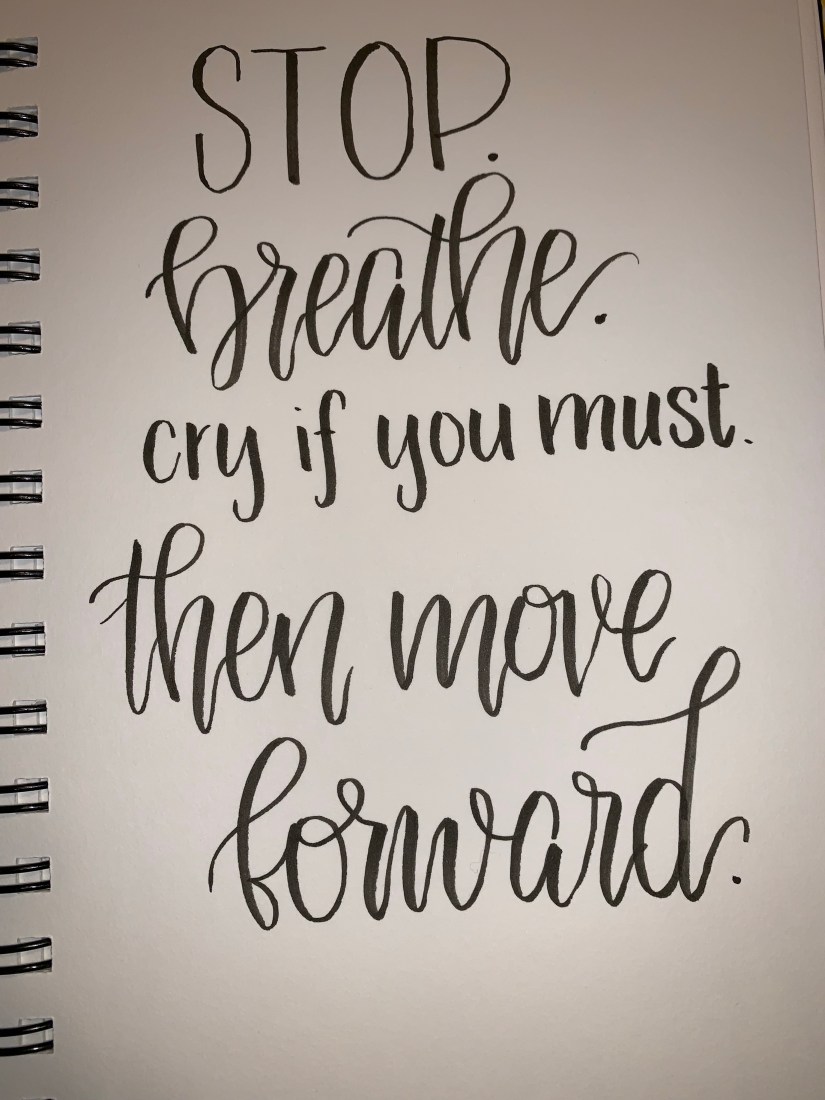 STOP.
breathe.
cry if you must.
then move
forward.